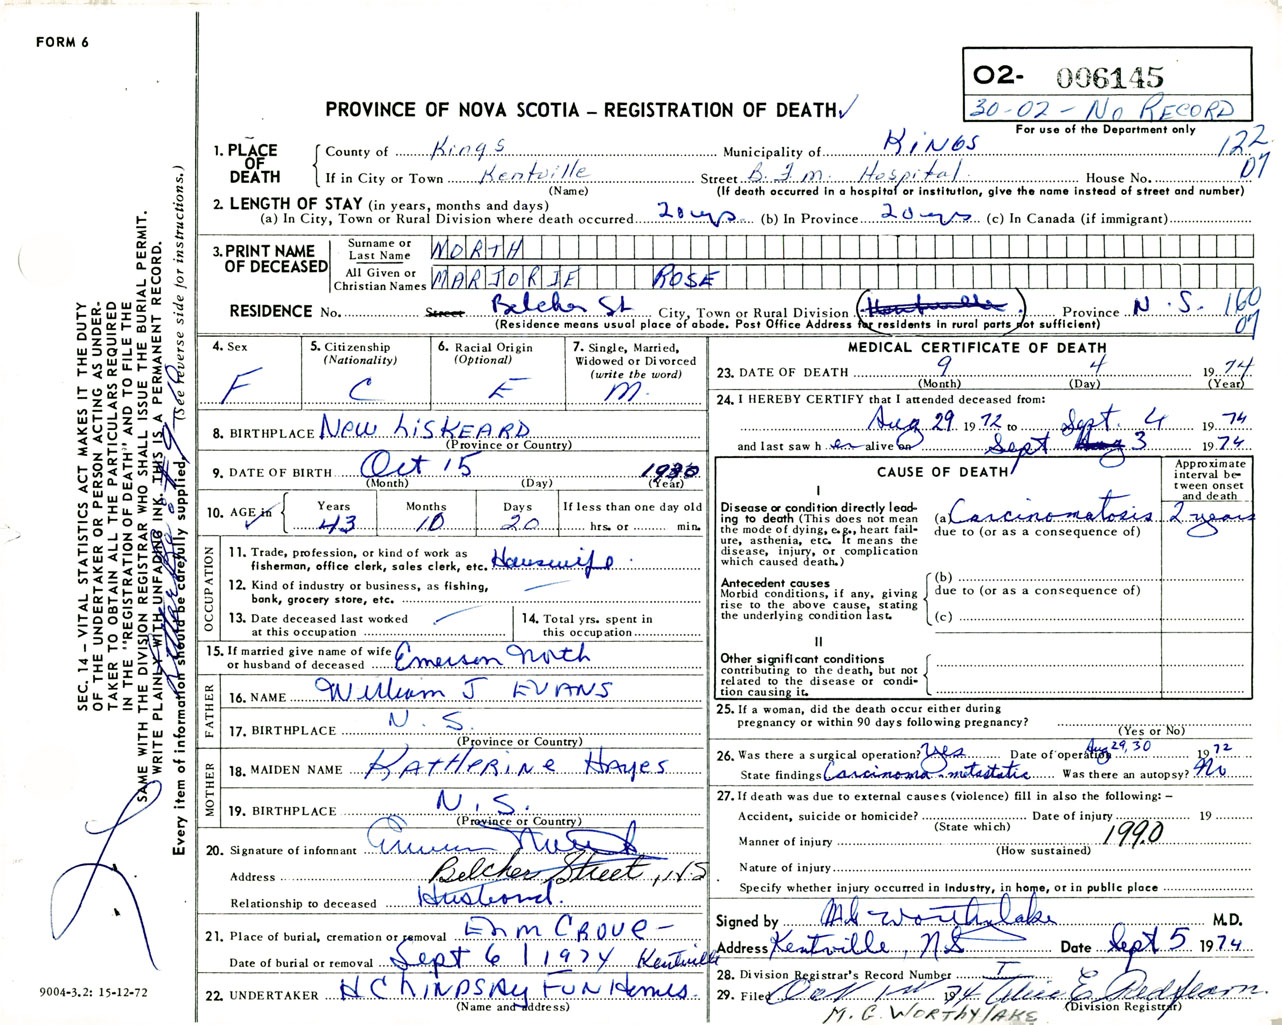 FORM 6
O2- 006145
30-02 - No RECORD
For use of the Department only
PROVINCE OF NOVA SCOTIA – REGISTRATION OF DEATH
122
07
1. PLACE OF DEATH
County of Kings Municipality of KINGS
If in City or Town Kentville Street B.F.M. Hospital House No.
(Name) (If death occurred in a hospital or institution, give the name instead of street and number)
2. LENGTH OF STAY (in years, months and days)
(a) In City, Town or Rural Division where death occurred 20 yrs (b) In Province 20 yrs (c) In Canada (if immigrant)
3. PRINT NAME OF DECEASED
Surname or Last Name NORTH
All Given or Christian Names MARJORIE ROSE
RESIDENCE No. Street Belcher St City, Town or Rural Division Province N.S. 160
07
(Residence means usual place of abode. Post Office Address for residents in rural parts not sufficient)
4. Sex F
5. Citizenship (Nationality) C
6. Racial Origin (Optional) E
7. Single, Married, Widowed or Divorced (write the word) M.
8. BIRTHPLACE New LISKEARD
(Province or Country)
9. DATE OF BIRTH Oct 15 1930
(Month) (Day) (Year)
10. AGE in Years 43 Months 10 Days 20 If less than one day old hrs. or min.
OCCUPATION
11. Trade, profession, or kind of work as fisherman, office clerk, sales clerk, etc. Housewife
12. Kind of industry or business, as fishing, bank, grocery store, etc.
13. Date deceased last worked at this occupation
14. Total yrs. spent in this occupation
15. If married give name of wife or husband of deceased Emerson North
FATHER
16. NAME William J EVANS
17. BIRTHPLACE N.S.
(Province or Country)
MOTHER
18. MAIDEN NAME KATHERINE HAYES
19. BIRTHPLACE N.S.
(Province or Country)
20. Signature of informant
Address Belcher Street, N.S
Relationship to deceased Husband.
21. Place of burial, cremation or removal Elm Grove -
Date of burial or removal Sept 6 / 1974 Kentville
22. UNDERTAKER H C LINDSAY FUN Homes.
(Name and address)
MEDICAL CERTIFICATE OF DEATH
23. DATE OF DEATH 9 4 1974
(Month) (Day) (Year)
24. I HEREBY CERTIFY that I attended deceased from:
Aug 29 1972 to Sept. 4 1974
and last saw h er alive on Sept Aug 3 1974
CAUSE OF DEATH
Approximate interval between onset and death
I
Disease or condition directly leading to death (This does not mean the mode of dying, e.g., heart failure, asthenia, etc. It means the disease, injury, or complication which caused death.)
(a) Carcinomatosis 2 years
due to (or as a consequence of)
Antecedent causes
Morbid conditions, if any, giving rise to the above cause, stating the underlying condition last.
(b)
due to (or as a consequence of)
(c)
II
Other significant conditions contributing to the death, but not related to the disease or condition causing it.
25. If a woman, did the death occur either during pregnancy or within 90 days following pregnancy?
(Yes or No)
26. Was there a surgical operation? Yes Date of operation Aug 29, 30 1972
State findings Carcinoma - metastatic Was there an autopsy? No
27. If death was due to external causes (violence) fill in also the following: –
Accident, suicide or homicide? Date of injury 19
(State which)
Manner of injury 199.0
(How sustained)
Nature of injury
Specify whether injury occurred in industry, in home, or in public place
Signed by MG Worthylake M.D.
Address Kentville, NS Date Sept 5 1974
28. Division Registrar's Record Number
29. Filed Oct 1st 1974 Alice E Redfearn.
(Division Registrar)
M. G. WORTHYLAKE
SEC. 14 – VITAL STATISTICS ACT MAKES IT THE DUTY
OF THE UNDERTAKER OR PERSON ACTING AS UNDER-
TAKER TO OBTAIN ALL THE PARTICULARS REQUIRED
IN THE "REGISTRATION OF DEATH" AND TO FILE THE
SAME WITH THE DIVISION REGISTRAR WHO SHALL ISSUE THE BURIAL PERMIT.
WRITE PLAINLY WITH UNFADING INK. THIS IS A PERMANENT RECORD.
Every item of information should be carefully supplied. (See reverse side for instructions.)
9004-3.2: 15-12-72